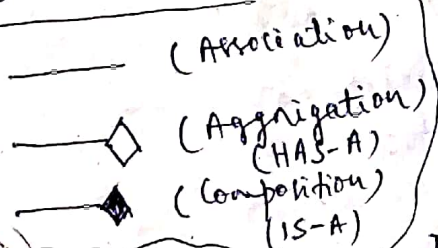 (Association)
(Aggrigation)
(HAS-A)
(Composition)
(IS-A)